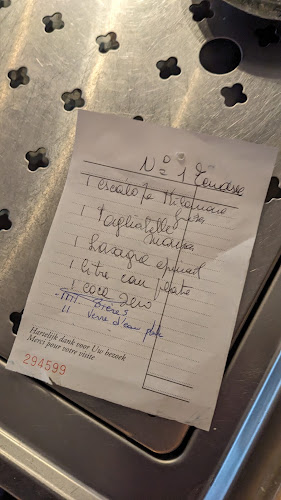 N° 1 Terrasse
1 escalope Milanaise
1 Tagliatelle
1 Lasagne
1 litre eau plate
1 coca zero
Bières
11 Verre d'eau
Hartelijk dank voor Uw bezoek
Merci pour votre visite
294599